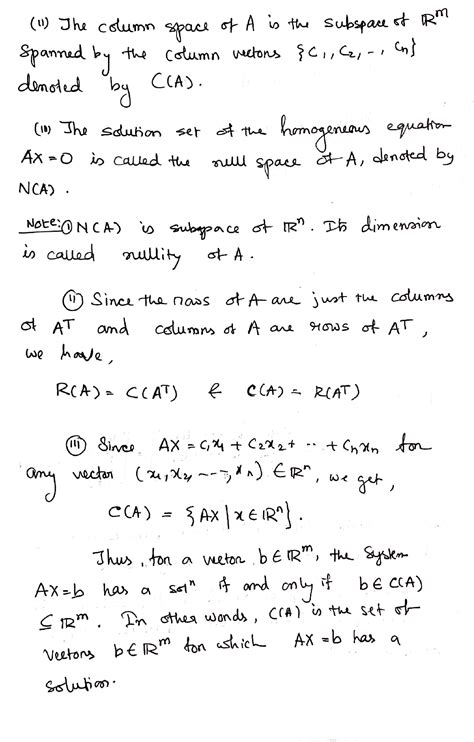 (ii) The column space of A is the subspace of ℝᵐ
Spanned by the column vectors {C₁, C₂, -, Cn}
denoted by C(A).
(iii) The solution set of the homogeneous equation
AX = 0 is called the null space of A, denoted by
N(A).
Note: (i) N(A) is subspace of ℝⁿ. Its dimension
is called nullity of A.
(ii) Since the rows of A are just the columns
of AT and columns of A are rows of AT,
we have,
R(A) = C(AT) & C(A) = R(AT)
(iii) Since AX = C₁x₁ + C₂x₂ + ·· + Cnxn for
any vector (x₁, x₂, ---, xn) ∈ ℝⁿ, we get,
C(A) = {AX | x ∈ ℝⁿ}.
Thus, for a vector b ∈ ℝᵐ, the system
AX = b has a solⁿ if and only if b ∈ C(A)
⊆ ℝᵐ. In other words, C(A) is the set of
vectors b ∈ ℝᵐ for which AX = b has a
solution.